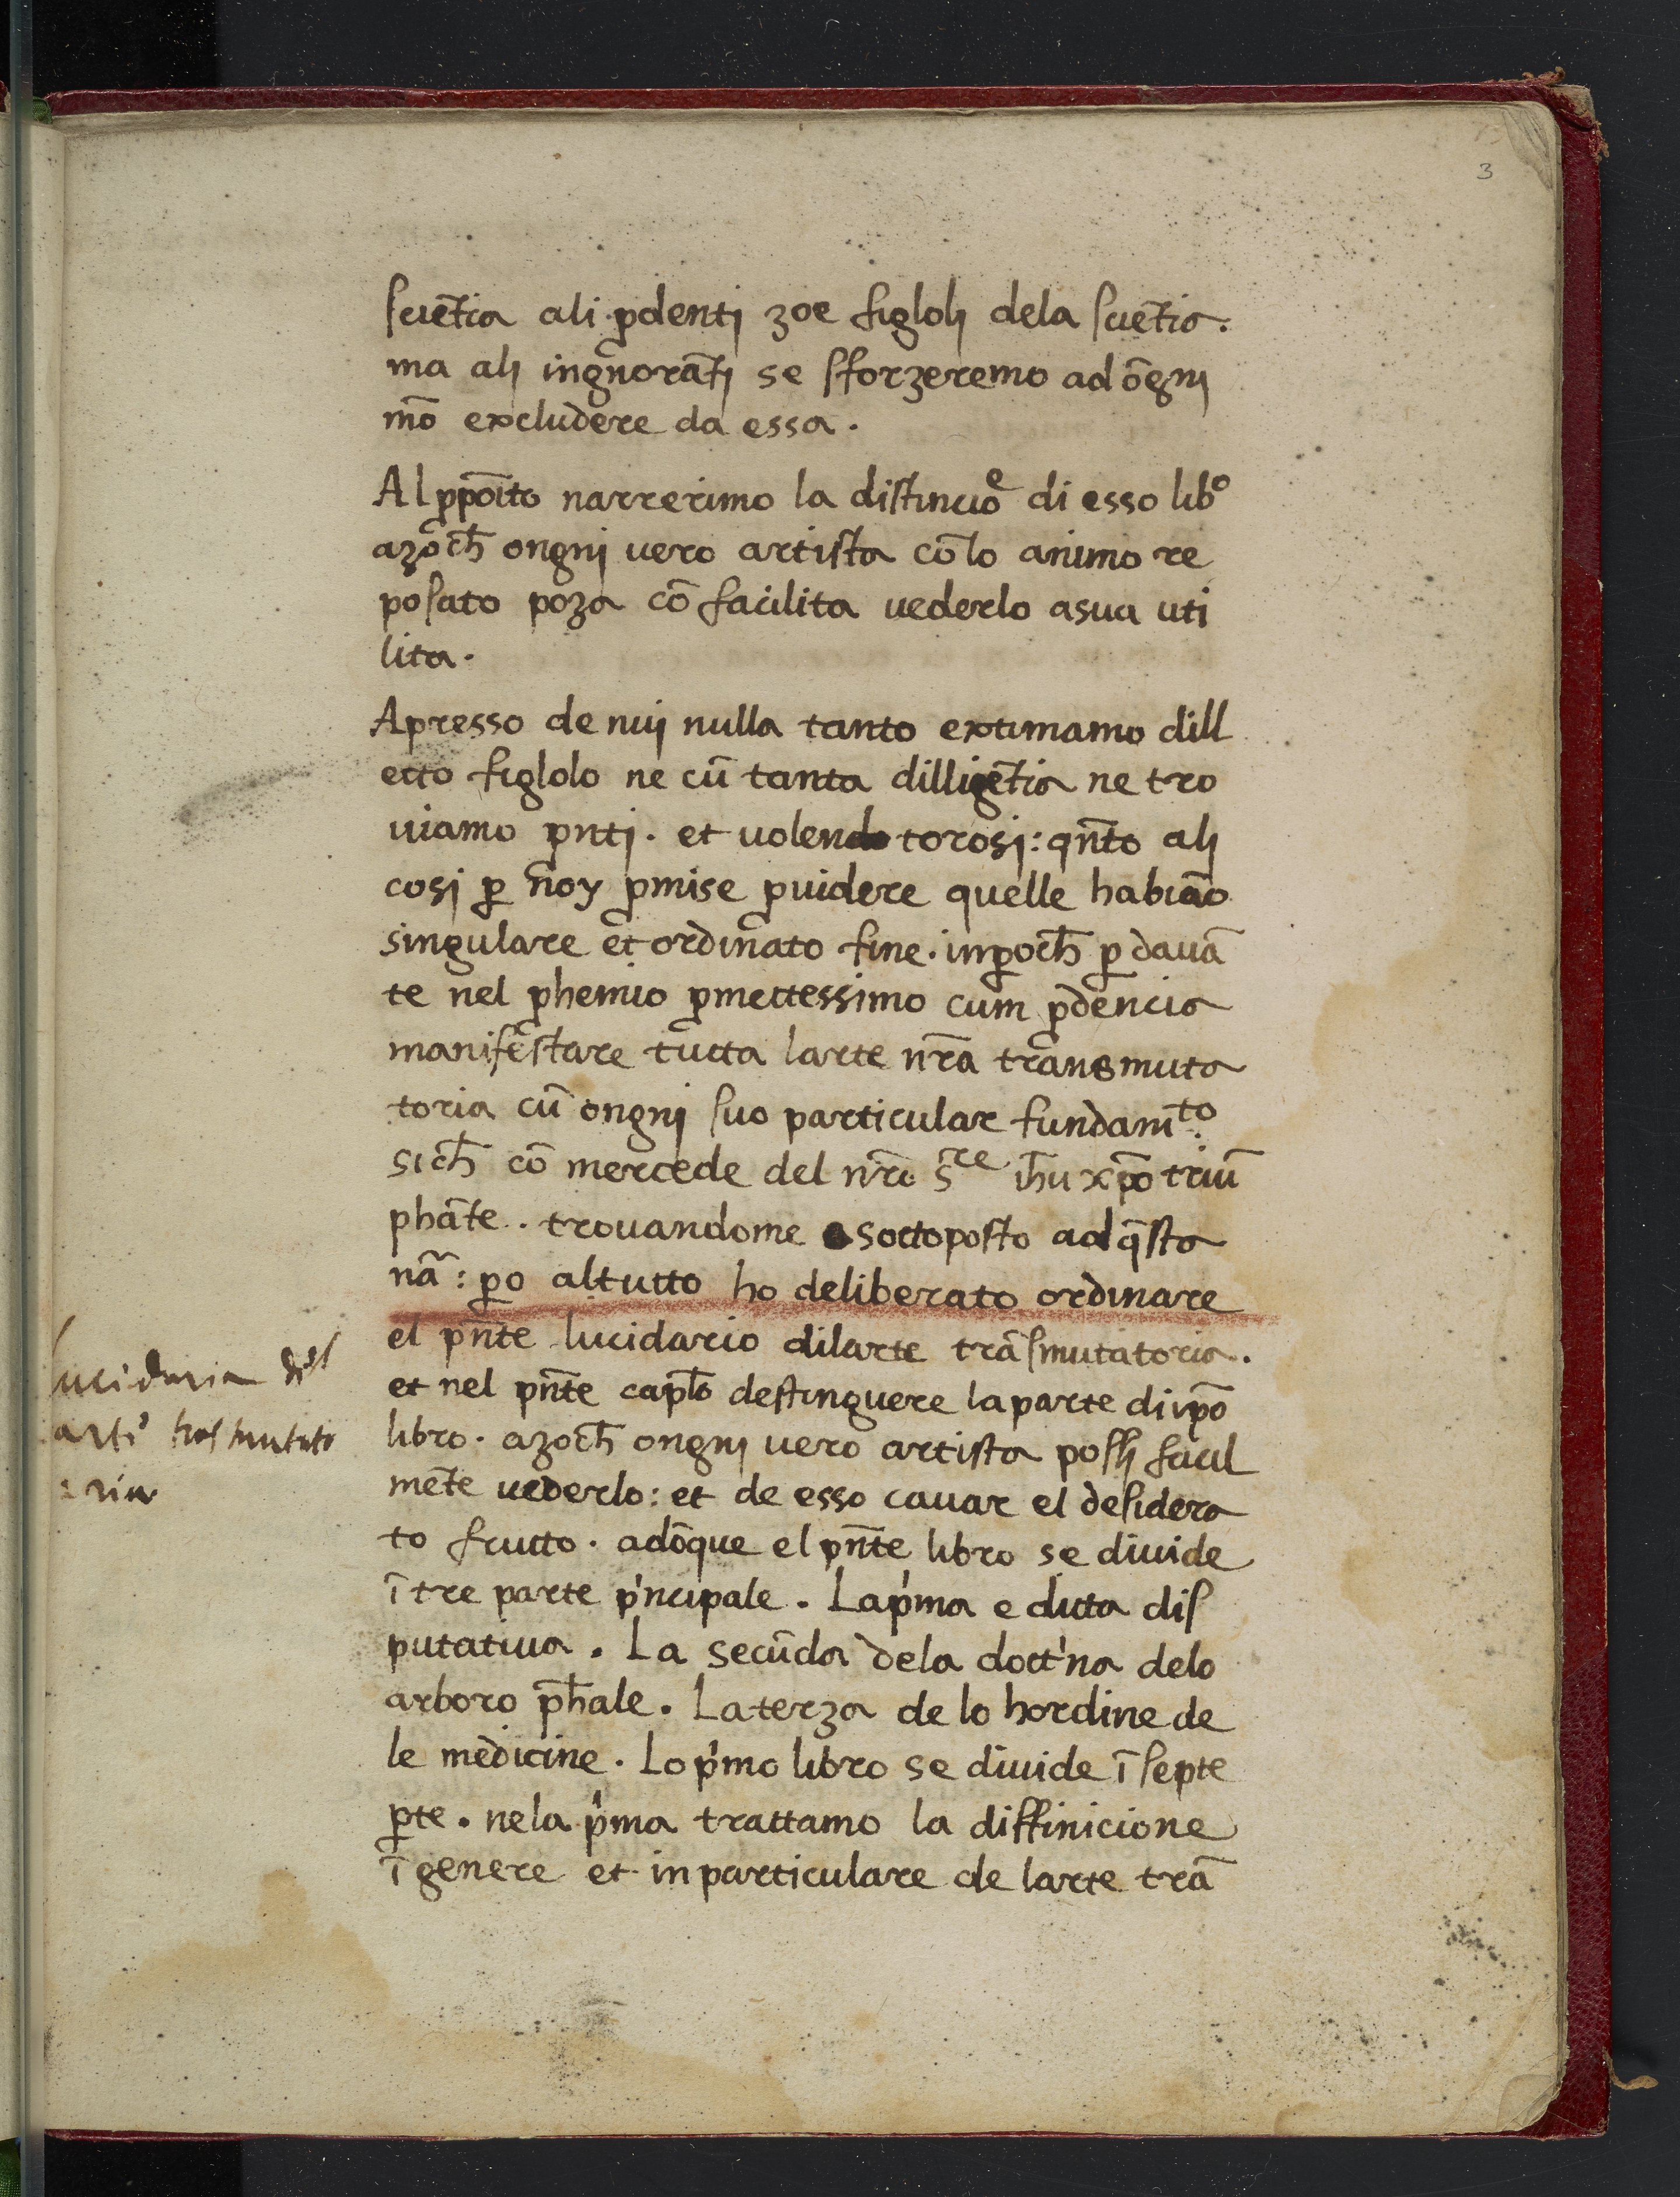 3
scie᷉tia ali p̱denti zoe figloli dela scie᷉tia.
ma alj ingñoratj̄ se sforzeremo ad ōgnj
mō excludere da essa.
Al ꝓpōito narrerimo la distinciōe di esso libº
azōch̄ ongnj uero artista cō lo animo re
posato poza cō facilita uederlo asua uti
lita.
Apresso de nuj nulla tanto extimamo dill
etto figlolo ne cū tanta dilligētia ne tro
uiamo pntj. et uolendo torosj: qn̄to alj
cosj ꝑ n̄oy ꝓmise ꝓuidere quelle habiāo
singulare et̄ ordin̄ato fine. inꝑoch̄ ꝑ dauā
te nel ꝓhemio ꝓmettessimo cum p̱dencia
manifēstare tūtta larte nr̄a trānsmuta
toria cū ongnj suo particular fundamᵗᵒ.
sich̄ cō mercede del nr̄o s̄ʳᵉ ih̄u xp̄o triū
phāte. trouandome sottoposto ad q̄sta
nā: ꝑo altutto ho deliberato ordinare
el pn̄te lucidario dilarte trāsmutatoria.
et nel pn̄te capl̄o destinguere la parte di ip̄o
libro. azoch̄ ongnj uero artista possj facil
mēte uederlo: et de esso cauar el desidera
to frutto. adōque el pn̄te libro se diuide
ī tre parte p'ncipale. La p'ma e ditta dis
putatiua. La secūda dela doct'na delo
arboro ph̄ale. La terza de lo hordine de
le medicine. Lo p'mo libro se diuide ī septe
ꝑte. nela p'ma trattamo la diffinicione
ī genere et in particulare de larte trā
lucidaria del
arte trasmutato
ria